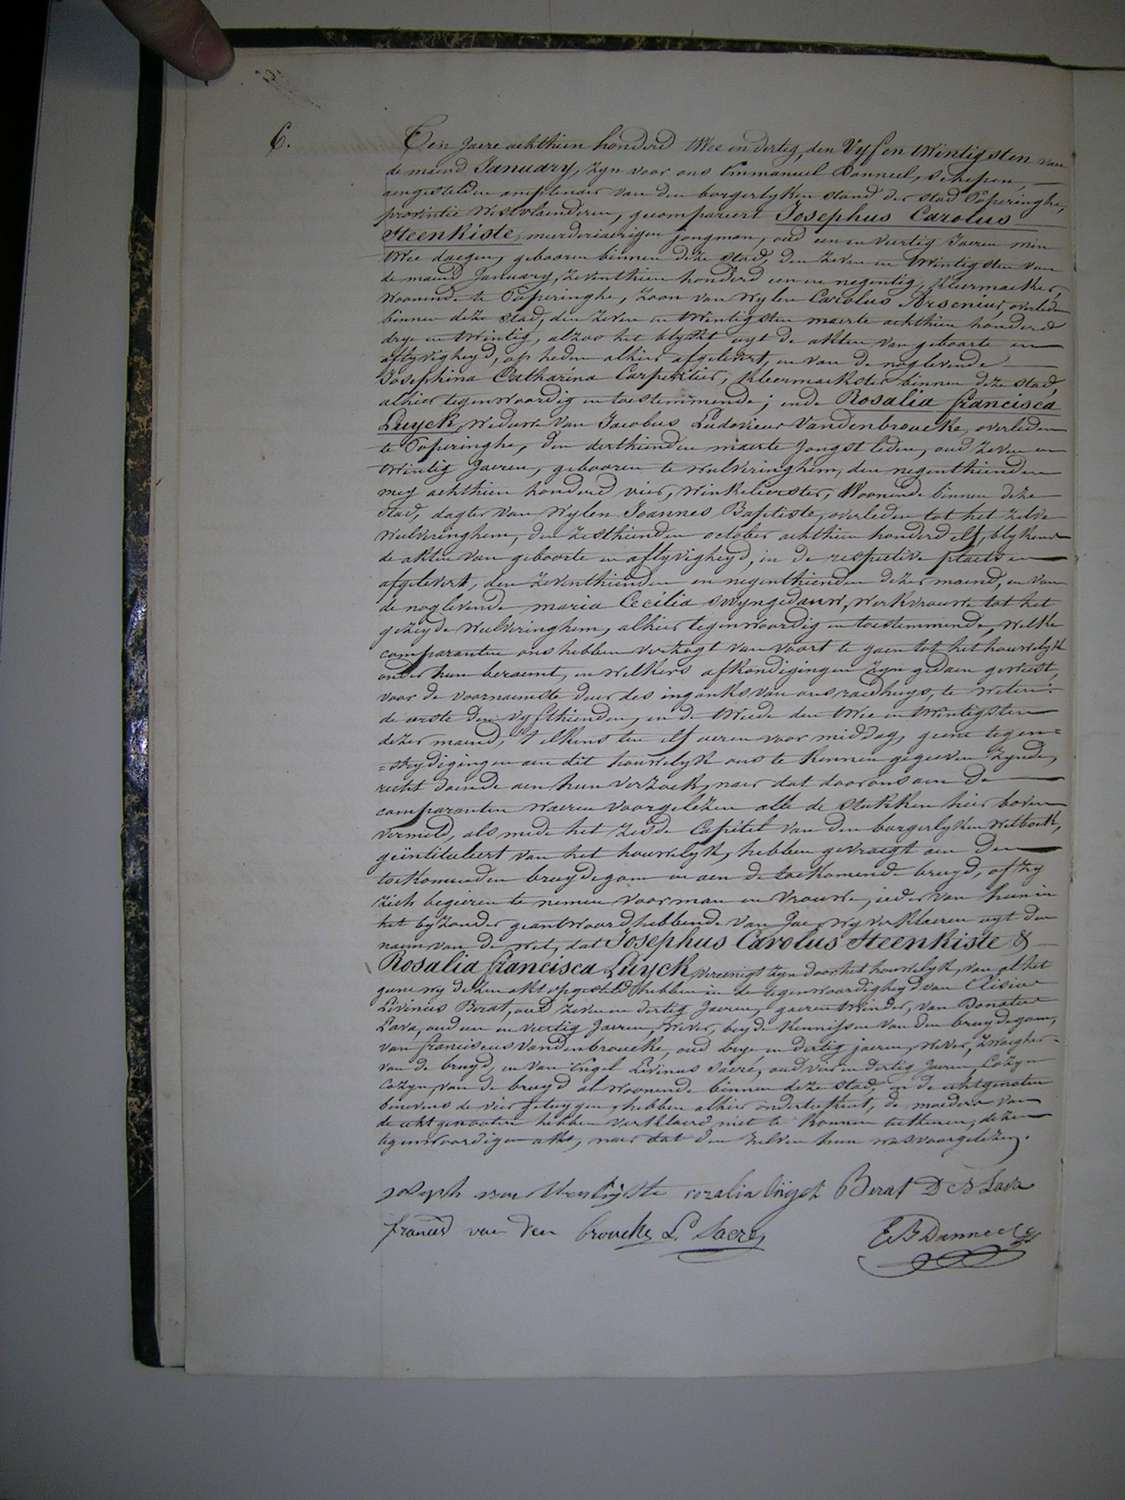 6.
Den Jaere achthien honderd twee en dertig, den Vyf en twintigsten van
de maend January, zyn voor ons Emmanuel Danneel, schepen,
aengestelden amptender van den borgerlyken stand der stad Poperinghe,
provintie Westvlaenderen, gecompareert Josephus Carolus
Steenkiste, meerderjaerigen jongman, oud een en veertig Jaeren min
twee daegen, gebooren binnen deze stad, den zeven en twintigsten van
de maend January, zeventhien honderd een en negentig, kleermaeker,
woonende te Poperinghe, zoon van wylen Carolus Arsenius, overleden
binnen deze stad, den zeven en twintigsten maerte achthien honderd
drye en twintig, alzoo het blykt uyt de akten van geboorte en
aflyvigheyd, op heden alhier afgelevert, en van de noglevende
Josephina Catharina Carpentier, kleermaekster binnen deze stad,
alhier tegenwoordig en toestemmende; ende Rosalia francisca
Luyck, Weduwe van Jacobus Ludovicus Vandenbroucke, overleden
te Poperinghe, den derthienden maerte Jongstleden, oud zeven en
twintig Jaeren, gebooren te Wulveringhem, den negenthienden
mey achthien honderd vier, Winkelierster, Woonende binnen deze
stad, dogter van wylen Joannes Baptiste, overleden tot het zelve
Wulveringhem, den zesthienden october achthien honderd elf, blykens
de akten van geboorte en aflyvigheyd, in de respective plaetsen
afgelevert, den zeventhienden en negenthienden dezer maend, en van
de noglevende maria Cecilia Swyngedauw, Werkvrouwe tot het
gezeyde Wulveringhem, alhier tegenwoordig en toestemmende, Welke
comparanten ons hebben verzogt van voort te gaen tot het houwelyk
onder hun beraemt, en welkers afkondigingen zyn gedaen geweest,
voor de voornaemste deur des ingangs van ons raedhuys, te weten:
de eerste den vyfthienden, en de tweede den twee en twintigsten
dezer maend, 't elkens ten elf ueren voor middag, geene tegen=
=strydigingen aen dit houwelyk ons te kennen gegeven zynde,
recht doende aen hun verzoek, naer dat door ons aen de
comparanten waeren voorgelezen alle de stukken hier boven
vermeld, als mede het zesde Capittel van den borgerlyken Wetboek,
geïntituleert van het houwelyk, hebben gevraegt aen den
toekomenden bruydegom en aen de toekomende bruyd, of zy
zich begeeren te nemen voor man en vrouwe, ieder van hun in
het byzonder geantwoord hebbende van Jae, wy verklaeren uyt den
naem van de wet, dat Josephus Carolus Steenkiste &
Rosalia francisca Luyck vereenigt zyn door het houwelyk, van al het
gene wy dezen akt opgesteld hebben in de tegenwoordigheyd van
Livinus Berat, oud zeven en dertig Jaeren, gaeren twinder, van Donatus
Lava, oud een en veertig Jaeren, wever, beyde kennissen van den bruydegom,
van franciscus Vandenbroucke, oud drye en dertig jaeren, wever, zwaeger
van de bruyd, en van Engel Livinus Sacré, oud vier en dertig Jaeren, Cozyn
Cozyn, van de bruyd al woonende binnen deze stad, en de aktgenoten
benevens de vier getuygen, hebben alhier onderteekent, de moeders van
de aktgenooten hebben verklaerd niet te konnen teekenen, dezen
tegenwoordigen akt, naer dat den zelven hun was voorgelezen.
joseph van rozalia Berat D Lava
francis van den broucke L. Sacre, E B Danneel